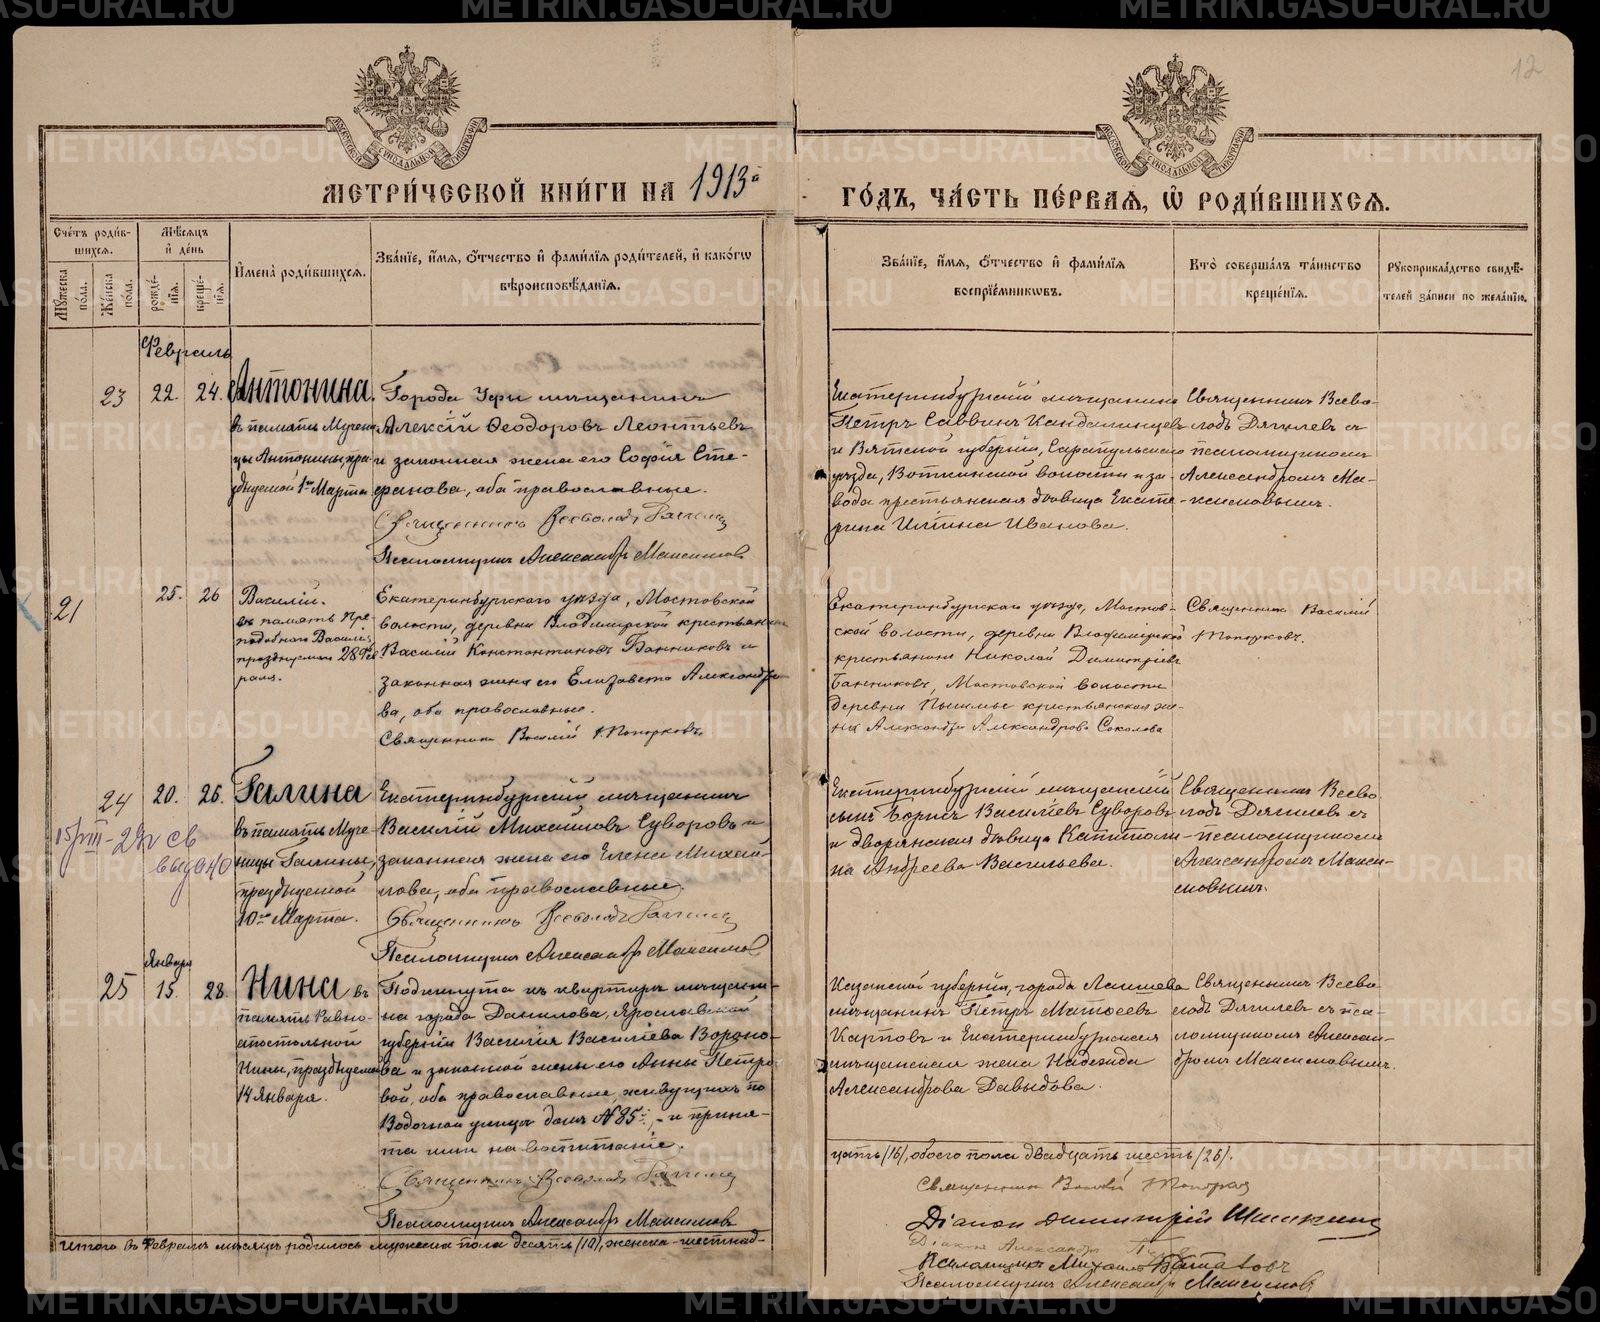 METRIKI.GASO-URAL.RU
12
МЕТРИ́ЧЕСКОЙ КНИ́ГИ НА 1913й ГО́ДЪ, ЧА́СТЬ ПЕ́РВАѦ, Ѡ҆ РОДИ́ВШИХСѦ.
Сче́тъ роди́в-
шихсѧ.
Мѣ́сѧцъ
и҆ де́нь
Мꙋ́жеска по́ла.
Же́нска по́ла.
рожде́-
нїѧ.
креще́-
нїѧ.
И҆мена̀ роди́вшихсѧ.
Зва́нїе, и҆́мѧ, ѻ҆́тчество и҆ фами́лїѧ роди́телей, и҆ како́гѡ
вѣроисповѣ́данїѧ.
Зва́нїе, и҆́мѧ, ѻ҆́тчество и҆ фами́лїѧ
воспрїе́мникѡвъ.
Кто̀ соверша́лъ та́инство
креще́нїѧ.
Рꙋкоприкла́дство свидѣ́-
телей за́писи по жела́нїю.
Февраль
23 22. 24. Антонина.
въ память Мучени-
цы Антонины, пра-
зднуемой 1го Марта
Города Уфы мѣщанинъ
Алексій Ѳеодоровъ Леонтьевъ
и законная жена его Софія Сте-
фанова, оба православные.
Священникъ Всеволодъ
Псаломщикъ Александръ Максимовъ
Екатеринбургскій мѣщанинъ
Петръ Саввинъ Кандалинцевъ
и Вятской губерніи, Сарапульскаго
уѣзда, Воткинской волости и за-
вода крестьянская дѣвица Екате-
рина Ильина Иванова.
Священникъ Всево-
лодъ Дягилевъ съ
псаломщикомъ
Александромъ Ма-
ксимовымъ.
21 25. 26 Василій.
въ память Пре-
подобнаго Василія,
празднуемаго 28 Фев
раля.
Екатеринбургскаго уѣзда, Мостовской
волости, деревни Владимірской крестьянинъ
Василій Константиновъ Банниковъ и
законная жена его Елизавета Александро
ва, оба православные.
Священникъ Василій Топорковъ.
Екатеринбургскаго уѣзда, Мостов-
ской волости, деревни Владимірской
крестьянинъ Николай Димитріевъ
Банниковъ, Мостовской волости
деревни крестьянская же-
на Александра Александрова Соколова
Священникъ Василій
Топорковъ.
24 20. 26. Галина
въ память Муче-
ницы Галины,
празднуемой
10го Марта.
15/VIII-29г св
выдано
Екатеринбургскій мѣщанинъ
Василій Михайловъ Суворовъ и
законная жена его Елена Михай-
лова, оба православные.
Священникъ Всеволодъ
Псаломщикъ Александръ Максимовъ
Екатеринбургскій мѣщанскій
сынъ Борисъ Василіевъ Суворовъ
и дворянская дѣвица Капитоли-
на Андреева Васильева.
Священникъ Всево
лодъ Дягилевъ съ
псаломщикомъ
Александромъ Макси-
мовымъ.
Января
25 15. 28. Нина въ
память Равно-
апостольной
Нины, празднуемой
14 Января.
Подкинута къ квартирѣ мѣщани-
на города Данилова, Ярославской
губерніи Василія Василіева Вороно-
ва и законной жены его Анны Петро-
вой, оба православные, живущихъ по
Водочной улицѣ домъ № 85й, - и приня-
та ими на воспитаніе.
Священникъ Всеволодъ
Псаломщикъ Александръ Максимовъ
Казанской губерніи, города Лаишева
мѣщанинъ Петръ Матѳеевъ
Карповъ и Екатеринбургская
мѣщанская жена Надежда
Александрова Давыдова.
Священникъ Всево-
лодъ Дягилевъ съ пса-
ломщикомъ Алексан-
дромъ Максимовымъ.
Итого въ Февралѣ мѣсяцѣ родилось мужеска пола десять (10), женска-шестнад-
цать (16), обоего пола двадцать шесть (26).
Священникъ Василій Топорковъ
Діаконъ Димитрій
Діаконъ Александръ
Псаломщикъ Михаилъ
Псаломщикъ Александръ Максимовъ